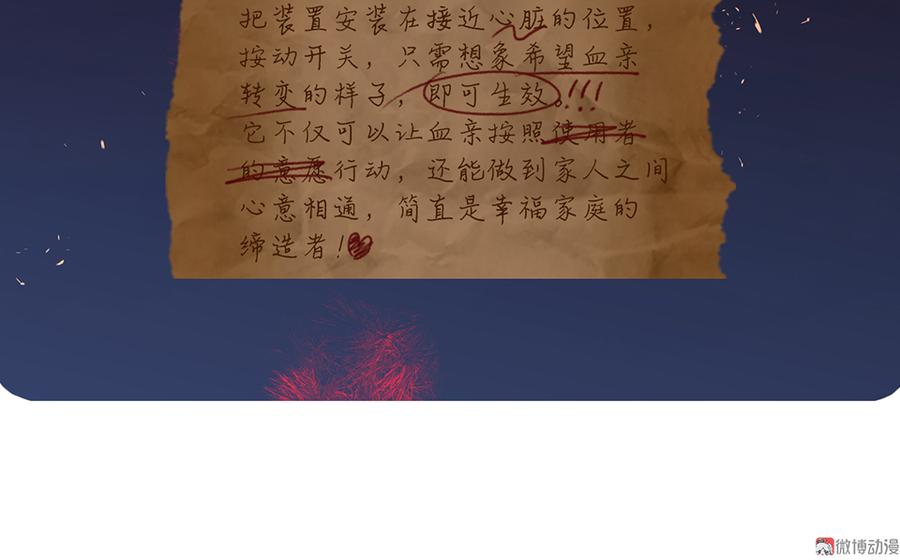 把装置安装在接近心脏的位置，
按动开关，只需想象希望血亲
转变的样子，即可生效。!!!
它不仅可以让血亲按照使用者
的意愿行动，还能做到家人之间
心意相通，简直是幸福家庭的
缔造者！
微博动漫